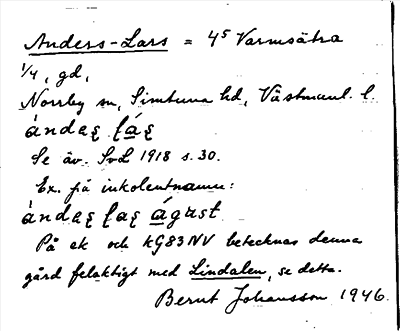 Anders-Lars = 4⁵ Varmsätra
1/4, gd,
Norrby sn, Simtuna hd, Västmanl. l.
ándaʂ ɭáʂ
Se äv. SvL 1918 s. 30.
Ex. på inkolentnamn:
ándaʂ ɭaʂ águst
På ek och KG83NV betecknas denna
gård felaktigt med Lindalen, se detta.
Bernt Johansson 1946.